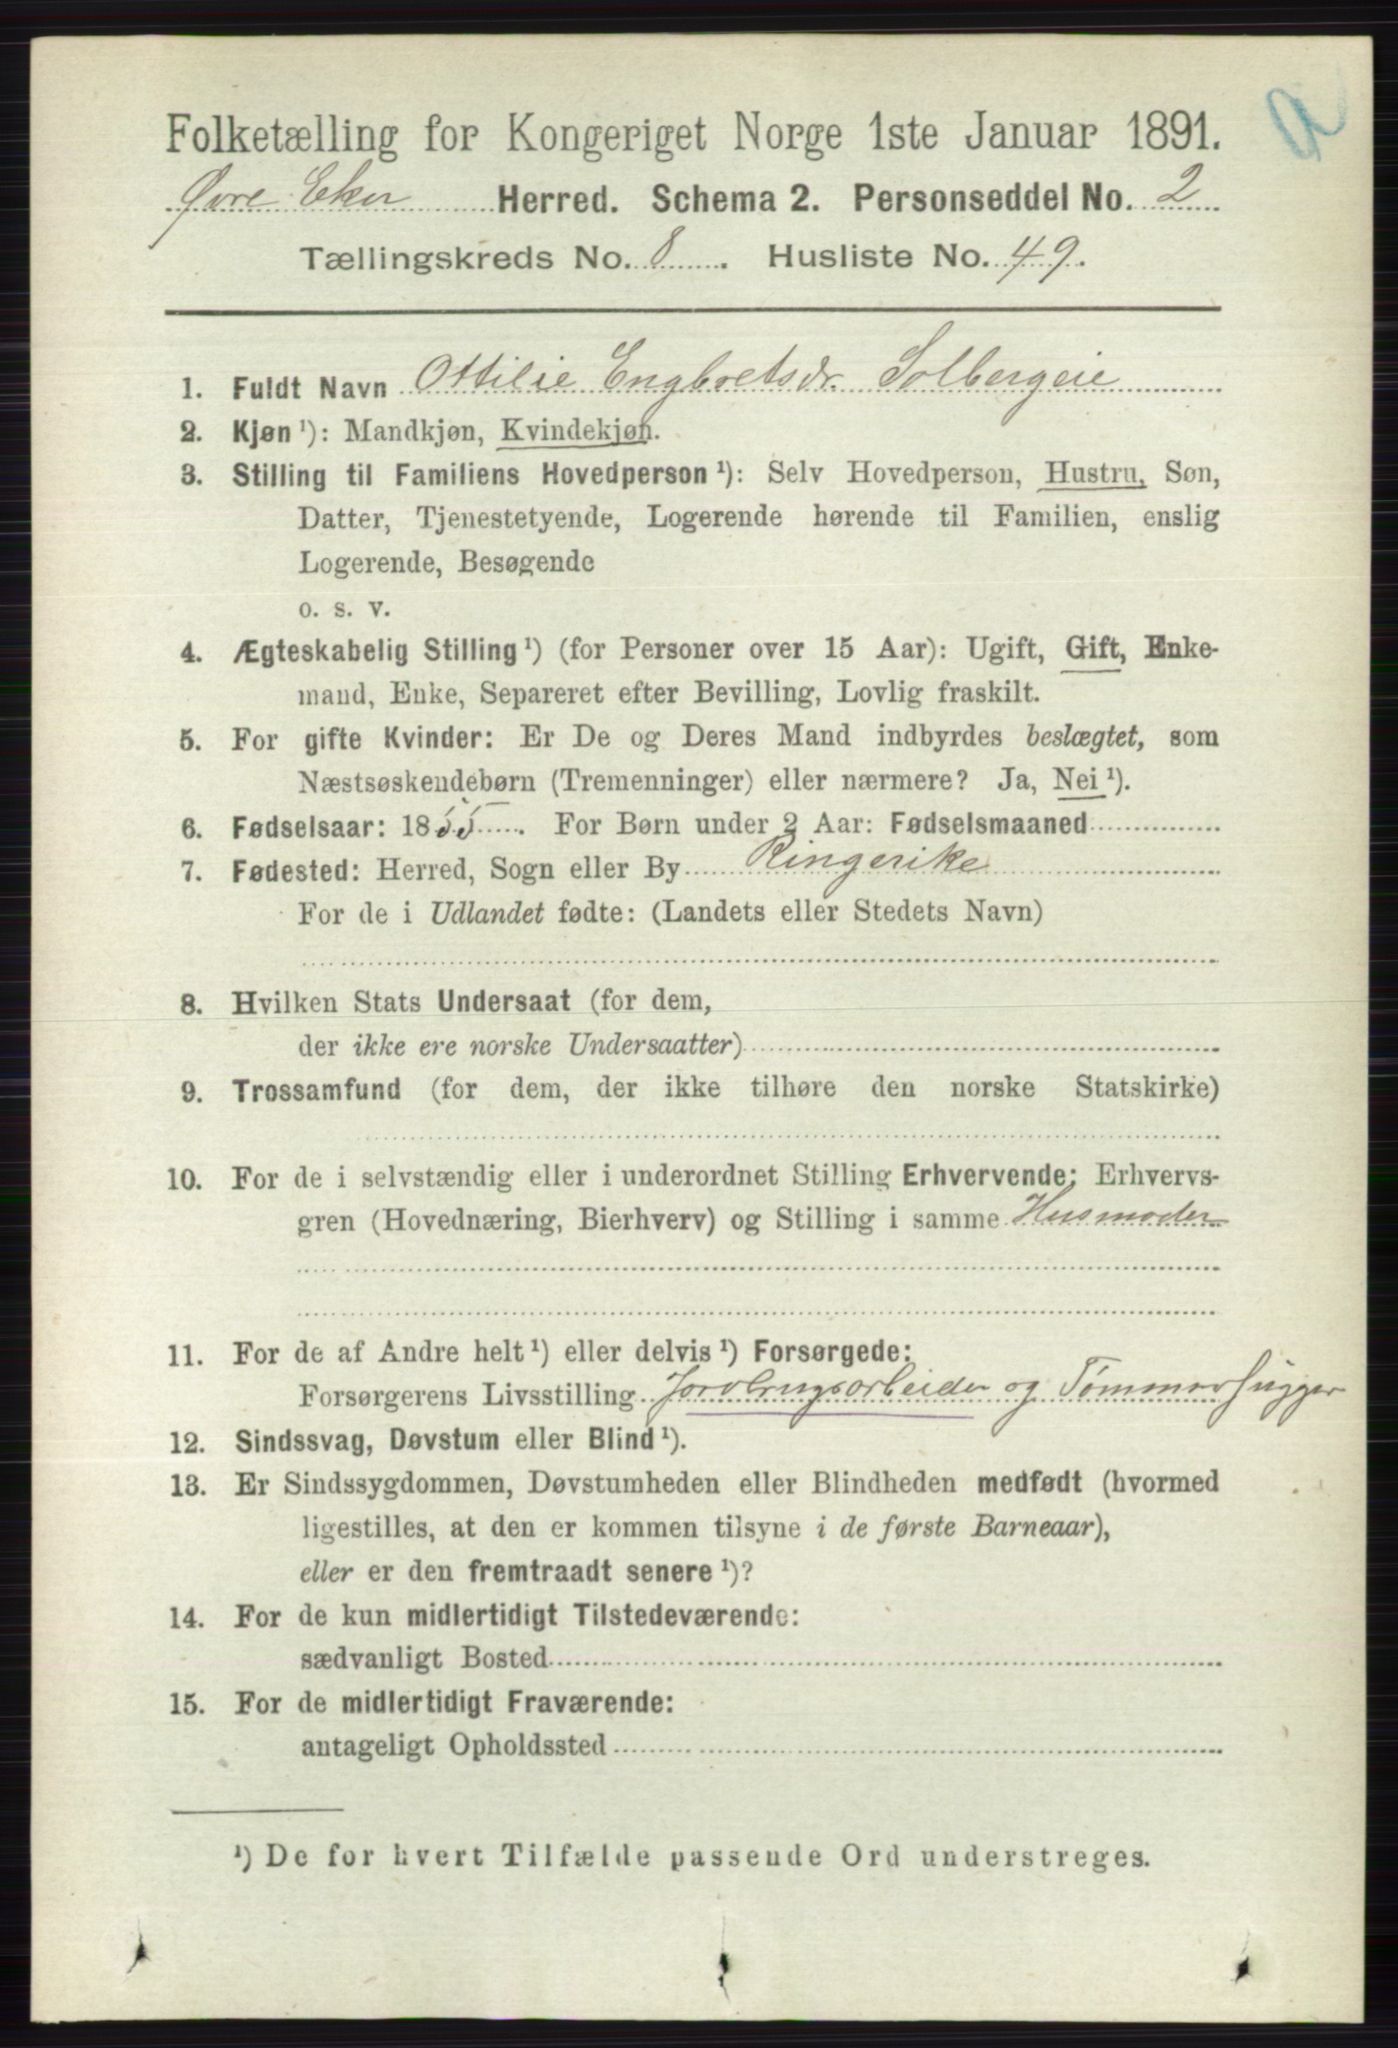 a
Folketælling for Kongeriget Norge 1ste Januar 1891.
Øvre Eker Herred. Schema 2. Personseddel No. 2
Tællingskreds No. 8. Husliste No. 49.
1. Fuldt Navn Ottilie Engbretsdr. Solbergeie
2. Kjøn ¹): Mandkjøn, Kvindekjøn.
3. Stilling til Familiens Hovedperson ¹): Selv Hovedperson, Hustru, Søn,
Datter, Tjenestetyende, Logerende hørende til Familien, enslig
Logerende, Besøgende
o. s. v.
4. Ægteskabelig Stilling ¹) (for Personer over 15 Aar): Ugift, Gift, Enke-
mand, Enke, Separeret efter Bevilling, Lovlig fraskilt.
5. For gifte Kvinder: Er De og Deres Mand indbyrdes beslægtet, som
Næstsøskendebørn (Tremenninger) eller nærmere? Ja, Nei ¹).
6. Fødselsaar: 1855. For Børn under 2 Aar: Fødselsmaaned
7. Fødested: Herred, Sogn eller By Ringerike
For de i Udlandet fødte: (Landets eller Stedets Navn)
8. Hvilken Stats Undersaat (for dem,
der ikke ere norske Undersaatter)
9. Trossamfund (for dem, der ikke tilhøre den norske Statskirke)
10. For de i selvstændig eller i underordnet Stilling Erhvervende: Erhvervs-
gren (Hovednæring, Bierhverv) og Stilling i samme Husmoder
11. For de af Andre helt ¹) eller delvis ¹) Forsørgede:
Forsørgerens Livsstilling Jordbrugsarbeider og Tømmerhugger
12. Sindssvag, Døvstum eller Blind ¹).
13. Er Sindssygdommen, Døvstumheden eller Blindheden medfødt (hvormed
ligestilles, at den er kommen tilsyne i de første Barneaar),
eller er den fremtraadt senere ¹)?
14. For de kun midlertidigt Tilstedeværende:
sædvanligt Bosted
15. For de midlertidigt Fraværende:
antageligt Opholdssted
¹) De for hvert Tilfælde passende Ord understreges.